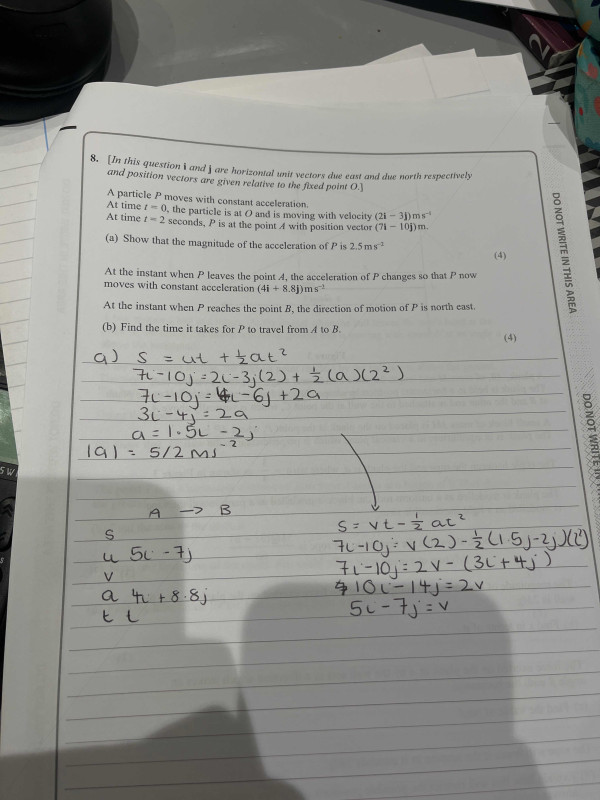 8. [In this question i and j are horizontal unit vectors due east and due north respectively
and position vectors are given relative to the fixed point O.]
A particle P moves with constant acceleration.
At time t = 0, the particle is at O and is moving with velocity (2i − 3j) m s⁻¹
At time t = 2 seconds, P is at the point A with position vector (7i − 10j) m.
(a) Show that the magnitude of the acceleration of P is 2.5 m s⁻²
(4)
At the instant when P leaves the point A, the acceleration of P changes so that P now
moves with constant acceleration (4i + 8.8j) m s⁻²
At the instant when P reaches the point B, the direction of motion of P is north east.
(b) Find the time it takes for P to travel from A to B.
(4)
a) s = ut + ½at²
7i-10j = 2i-3j(2) + ½(a)(2²)
7i-10j = 4i-6j + 2a
3i-4j = 2a
a = 1.5i - 2j
|a| = 5/2 ms⁻²
A → B
s
u 5i - 7j
v
a 4i + 8.8j
t t
s = vt - ½at²
7i-10j = v(2) - ½(1.5j-2j)(2²)
7i-10j = 2v - (3i+4j)
10i-14j = 2v
5i-7j = v
DO NOT WRITE IN THIS AREA
DO NOT WRITE IN